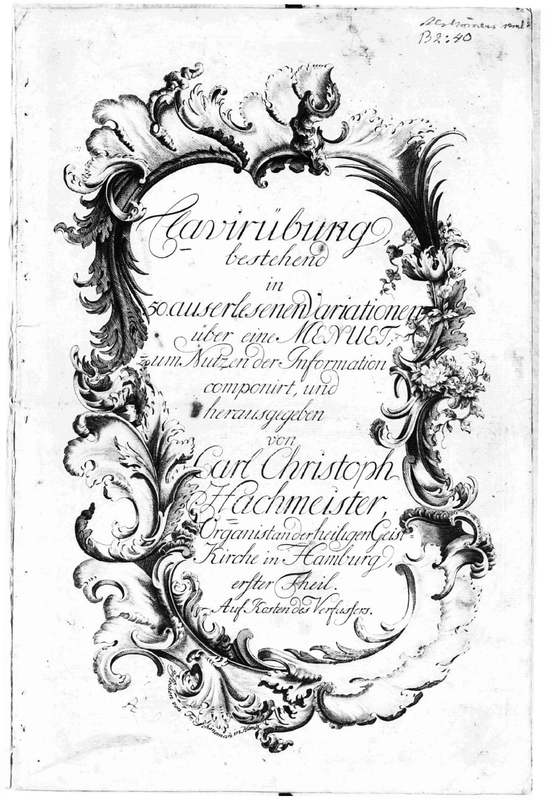 B2:40
Clavirübung,
bestehend
in
50. auserlesenen Variationen
über eine MENUET,
zum Nutzen der Information
componirt, und
herausgegeben
von
Carl Christoph
Hachmeister,
Organist an der heiligen Geist
Kirche in Hamburg,
erster Theil.
Auf Kosten des Verfassers.